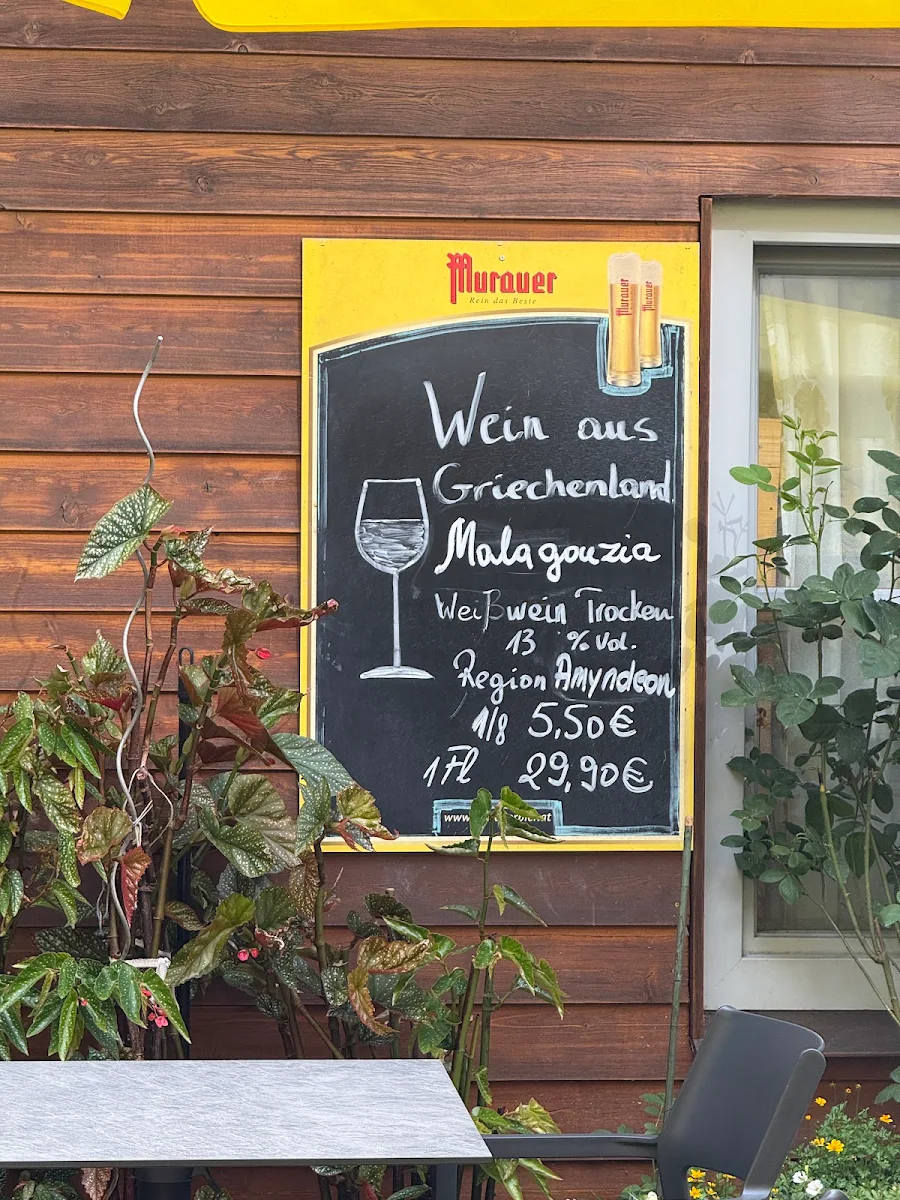 Murauer
Rein das Beste
Murauer
Murauer
Wein aus
Griechenland
Malagouzia
Weißwein Trocken
13 % Vol.
Region Amyndeon
1/8 5,50€
1 Fl 29,90€